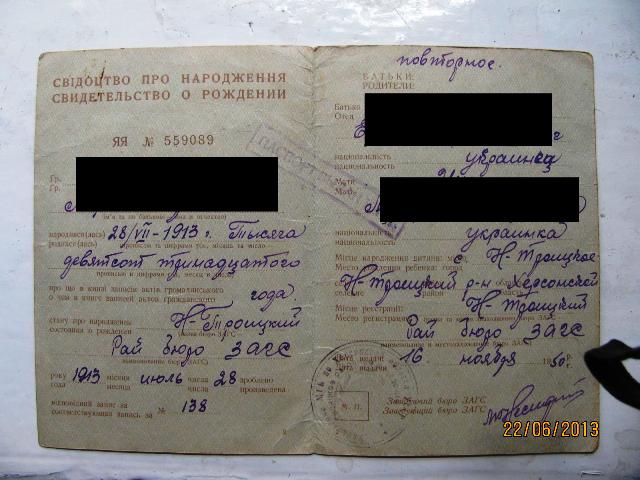 СВІДОЦТВО ПРО НАРОДЖЕННЯ
СВИДЕТЕЛЬСТВО О РОЖДЕНИИ
ЯЯ № 559089
Гр.
Гр.
народився(лась) 28/VII - 1913 г. Тысяча
родился(лась)
девятсот тринадцатого
про що в книзі записів актів громадянського
о чем в книге записей актов гражданского года.
стану про народження Н-Троицкий
состояния о рождении
Рай бюро ЗАГС
року 1913 місяця июль числа 28 зроблено
года месяца числа произведена
відповідний запис за № 138
соответствующая запись за
повторное.
БАТЬКИ:
РОДИТЕЛИ:
Батько
Отец
національність украинец
национальность
Мати
Мать
національність украинка
национальность
Місце народження дитини: с. Н-Троицкое
Место рождения ребенка: город
Н-Троицкий р-н Херсонской
Місце реєстрації: Н-Троицкий
Место регистрации
Рай бюро ЗАГС
Дата видачі 16 ноября 1950 г.
Дата выдачи
М. П.
Завідуючий бюро ЗАГС
Заведующий бюро ЗАГС
22/06/2013